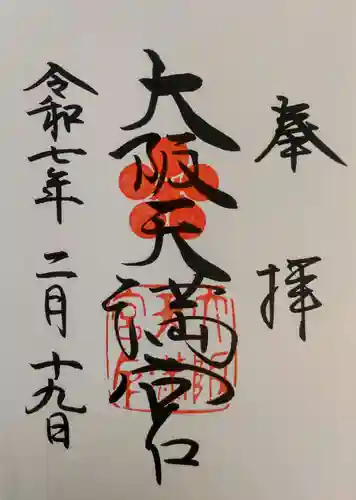 奉拝
大阪天満宮
令和七年二月十九日